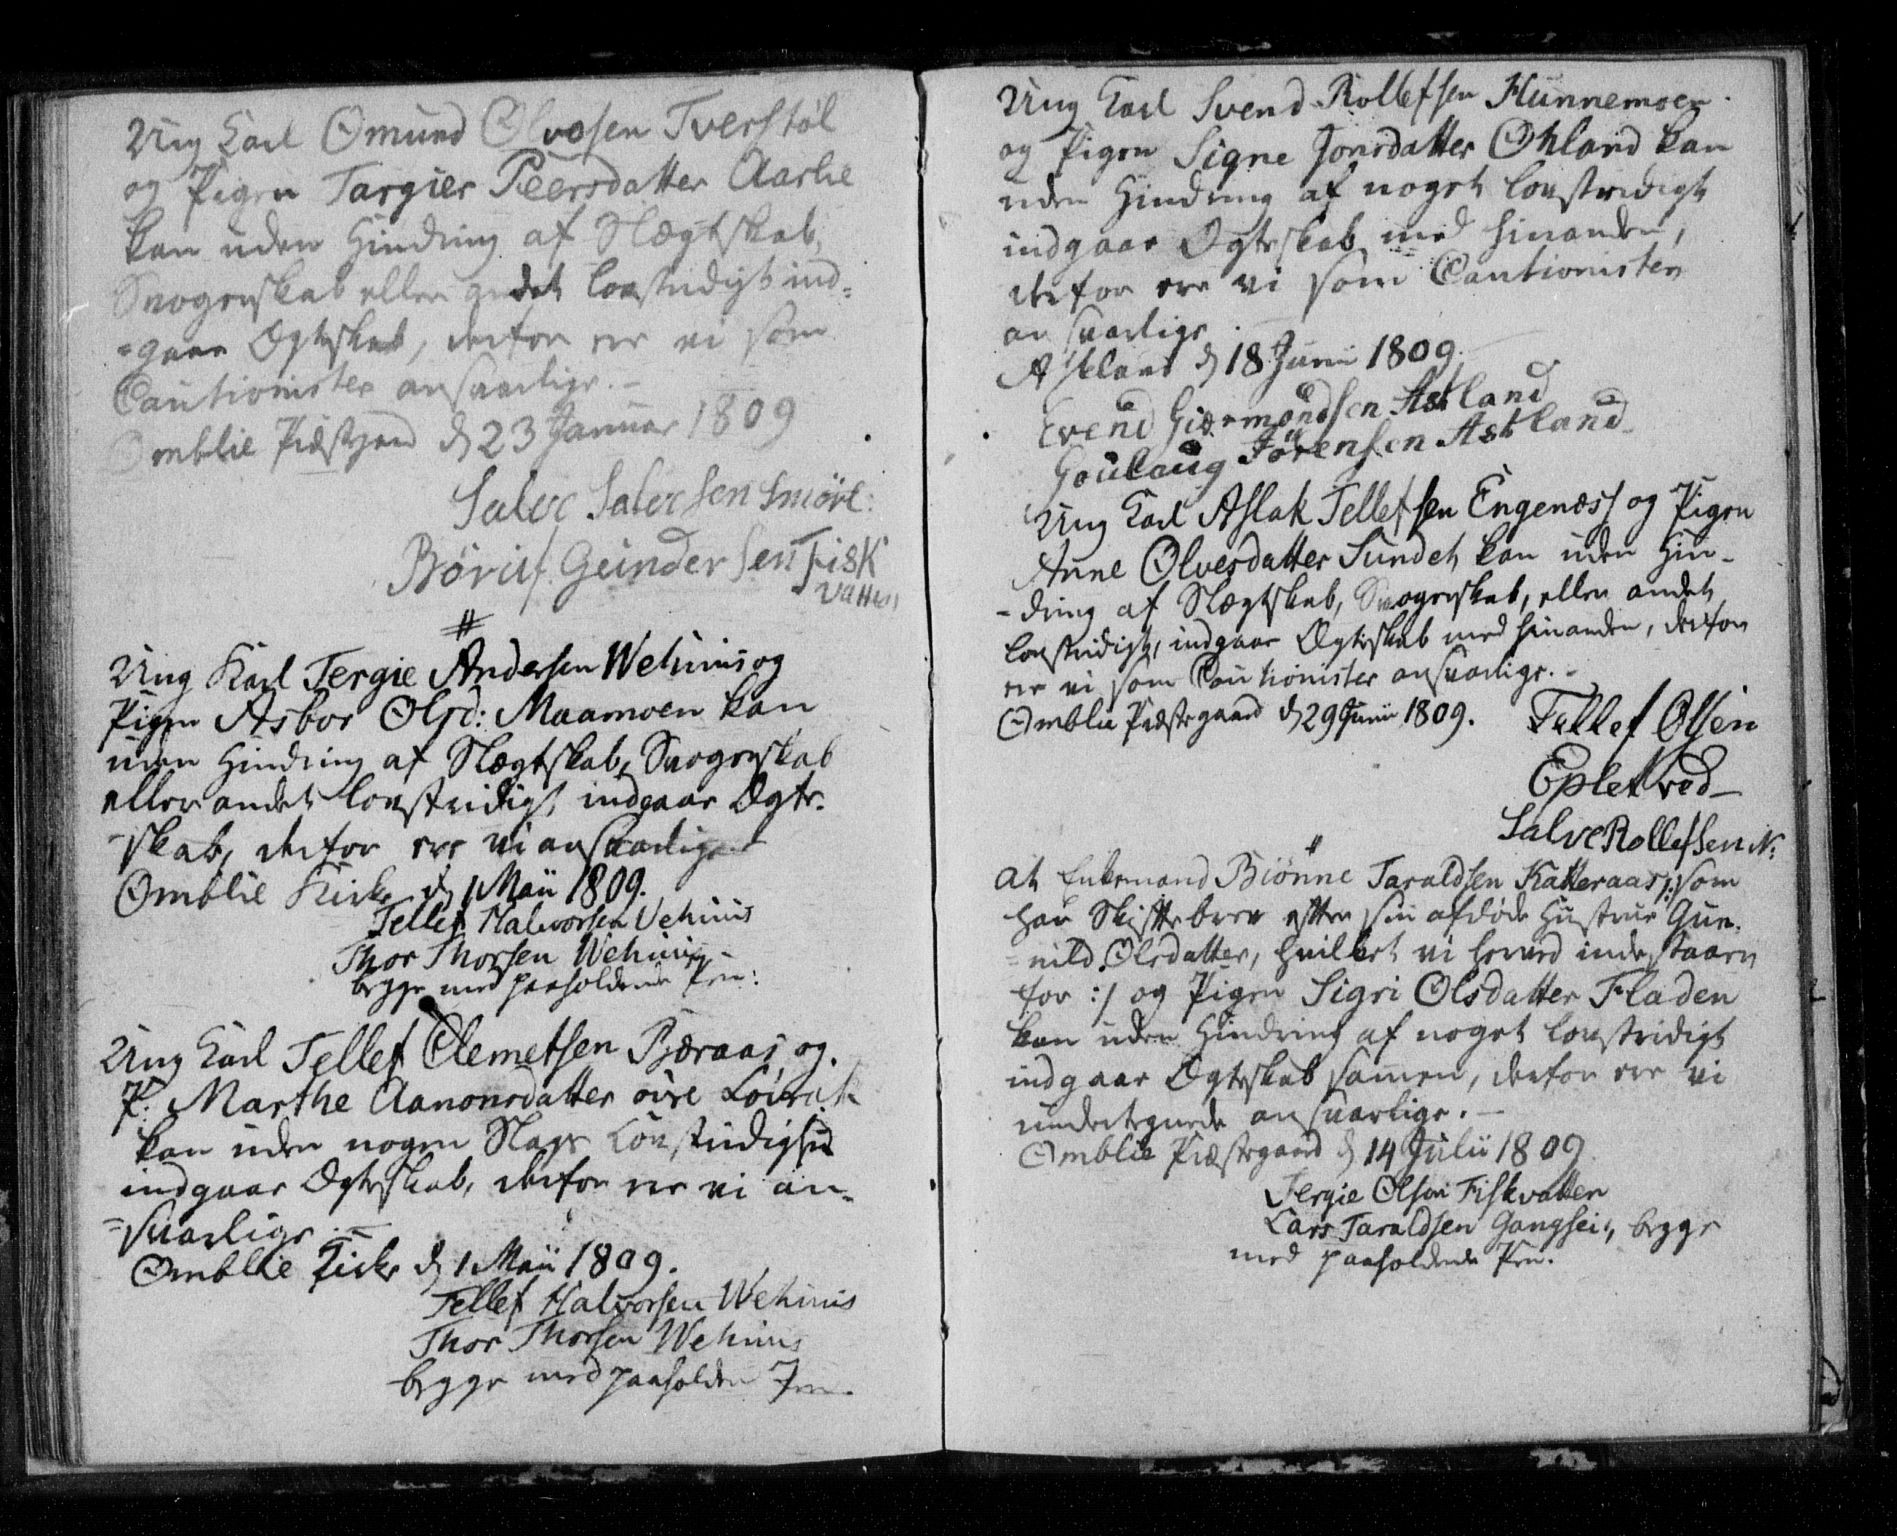 Ung Karl Omund Olvosen Tverstøl
og Pigen Targier Peersdatter Aashe
kan uden Hindring af Slægtskab,
Svogerskab eller andet lovstridigt ind=
=gaae Ægteskab, derfor ere vi som
Cautionister ansvarlige. -
Omblie Præstgaard d 23 Januar 1809
Salve Salvesen Smørl:
Børiuf Gundersen Fisk
vatten
#
Ung Karl Tergie Andersen Wehuus og
Pigen Asbor Olsd: Maamoen kan
uden Hindring af Slægtskab, Svogerskab
eller andet lovstridigt indgaae Ægte-
-skab, derfor ere vi ansvarlige
Omblie Kirke d 1 Maii 1809.
Tellef Halvorsen Vehuus
Thor Thorsen Wehuus
begge med paaholdende Pen:
Ung Karl Tellef Clemetsen Bæraas og
P: Marthe Aanonsdatter øvre Løvrak
kan uden nogen Slags Lovstridighed
indgaae Ægteskab, derfor ere vi an-
=svarlige. -
Omblie Kirke d 1 Maii 1809.
Tellef Halvorsen Wehuus
Thor Thorsen Wehuus
begge med paaholden Pen.
Ung Karl Svend Rollefsen Hunnemoen
og Pigen Signe Jonsdatter Ohland kan
uden Hindring af noget lovstridigt
indgaae Ægteskab med hinanden,
derfor ere vi som Cautionister
ansvarlige.
Askland d 18 Junii 1809.
Evend Giermondsen Askland
Goulaug Jörensen Askland
Ung Karl Aslak Tellefsen Engenæss og Pigen
Anne Olvesdatter Sundet kan uden Hin-
-dring af Slægtskab, Svogerskab, eller andet
lovstridigt, indgaae Ægteskab med hinanden, derfor
ere vi som Cautionister ansvarlige. -
Omblie Præstegaard d 29 Junii 1809. Tellef Olsen
Epletved
Salve Rollefsen N:
#
At Enkemand Biønne Taraldsen Katteraas /: som
har Skiftebrev efter sin afdøde Hustrue Gun-
=nild Olsdatter, hvilket vi herved indestaaer
for :/ og Pigen Sigri Olsdatter Fladen
kan uden Hindring af noget lovstridigt
indgaae Ægteskab samen, derfor ere vi
undertegnede ansvarlige. -
Omblie Præstegaard d 14 Julii 1809
Tergie Olson Fiskvatten
Lars Taraldsen Gangsei, begge
med paaholdende Pen.